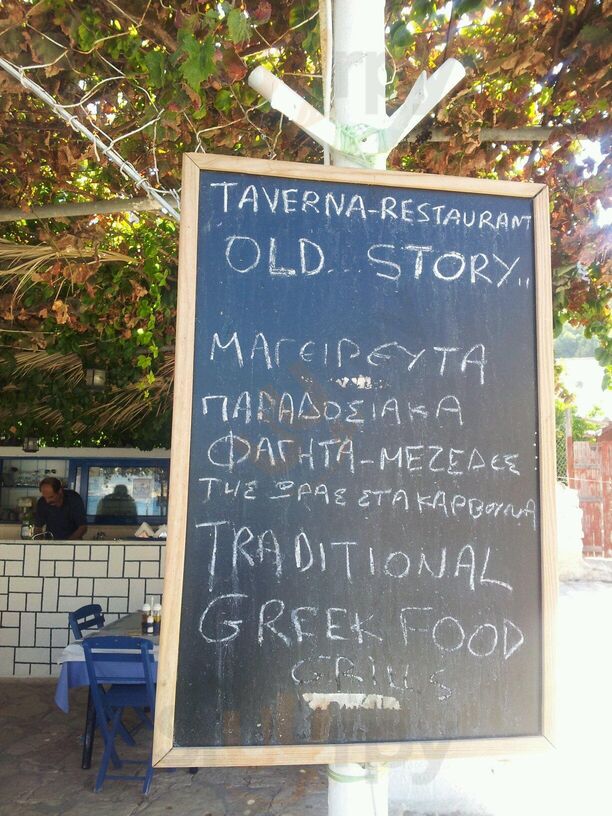 TAVERNA-RESTAURANT
OLD... STORY..
ΜΑΓΕΙΡΕΥΤΑ
ΠΑΡΑΔΟΣΙΑΚΑ
ΦΑΓΗΤΑ-ΜΕΖΕΔΕΣ
ΤΗΣ ΩΡΑΣ ΣΤΑ ΚΑΡΒΟΥΝΑ
TRADITIONAL
GREEK FOOD
GRILLS